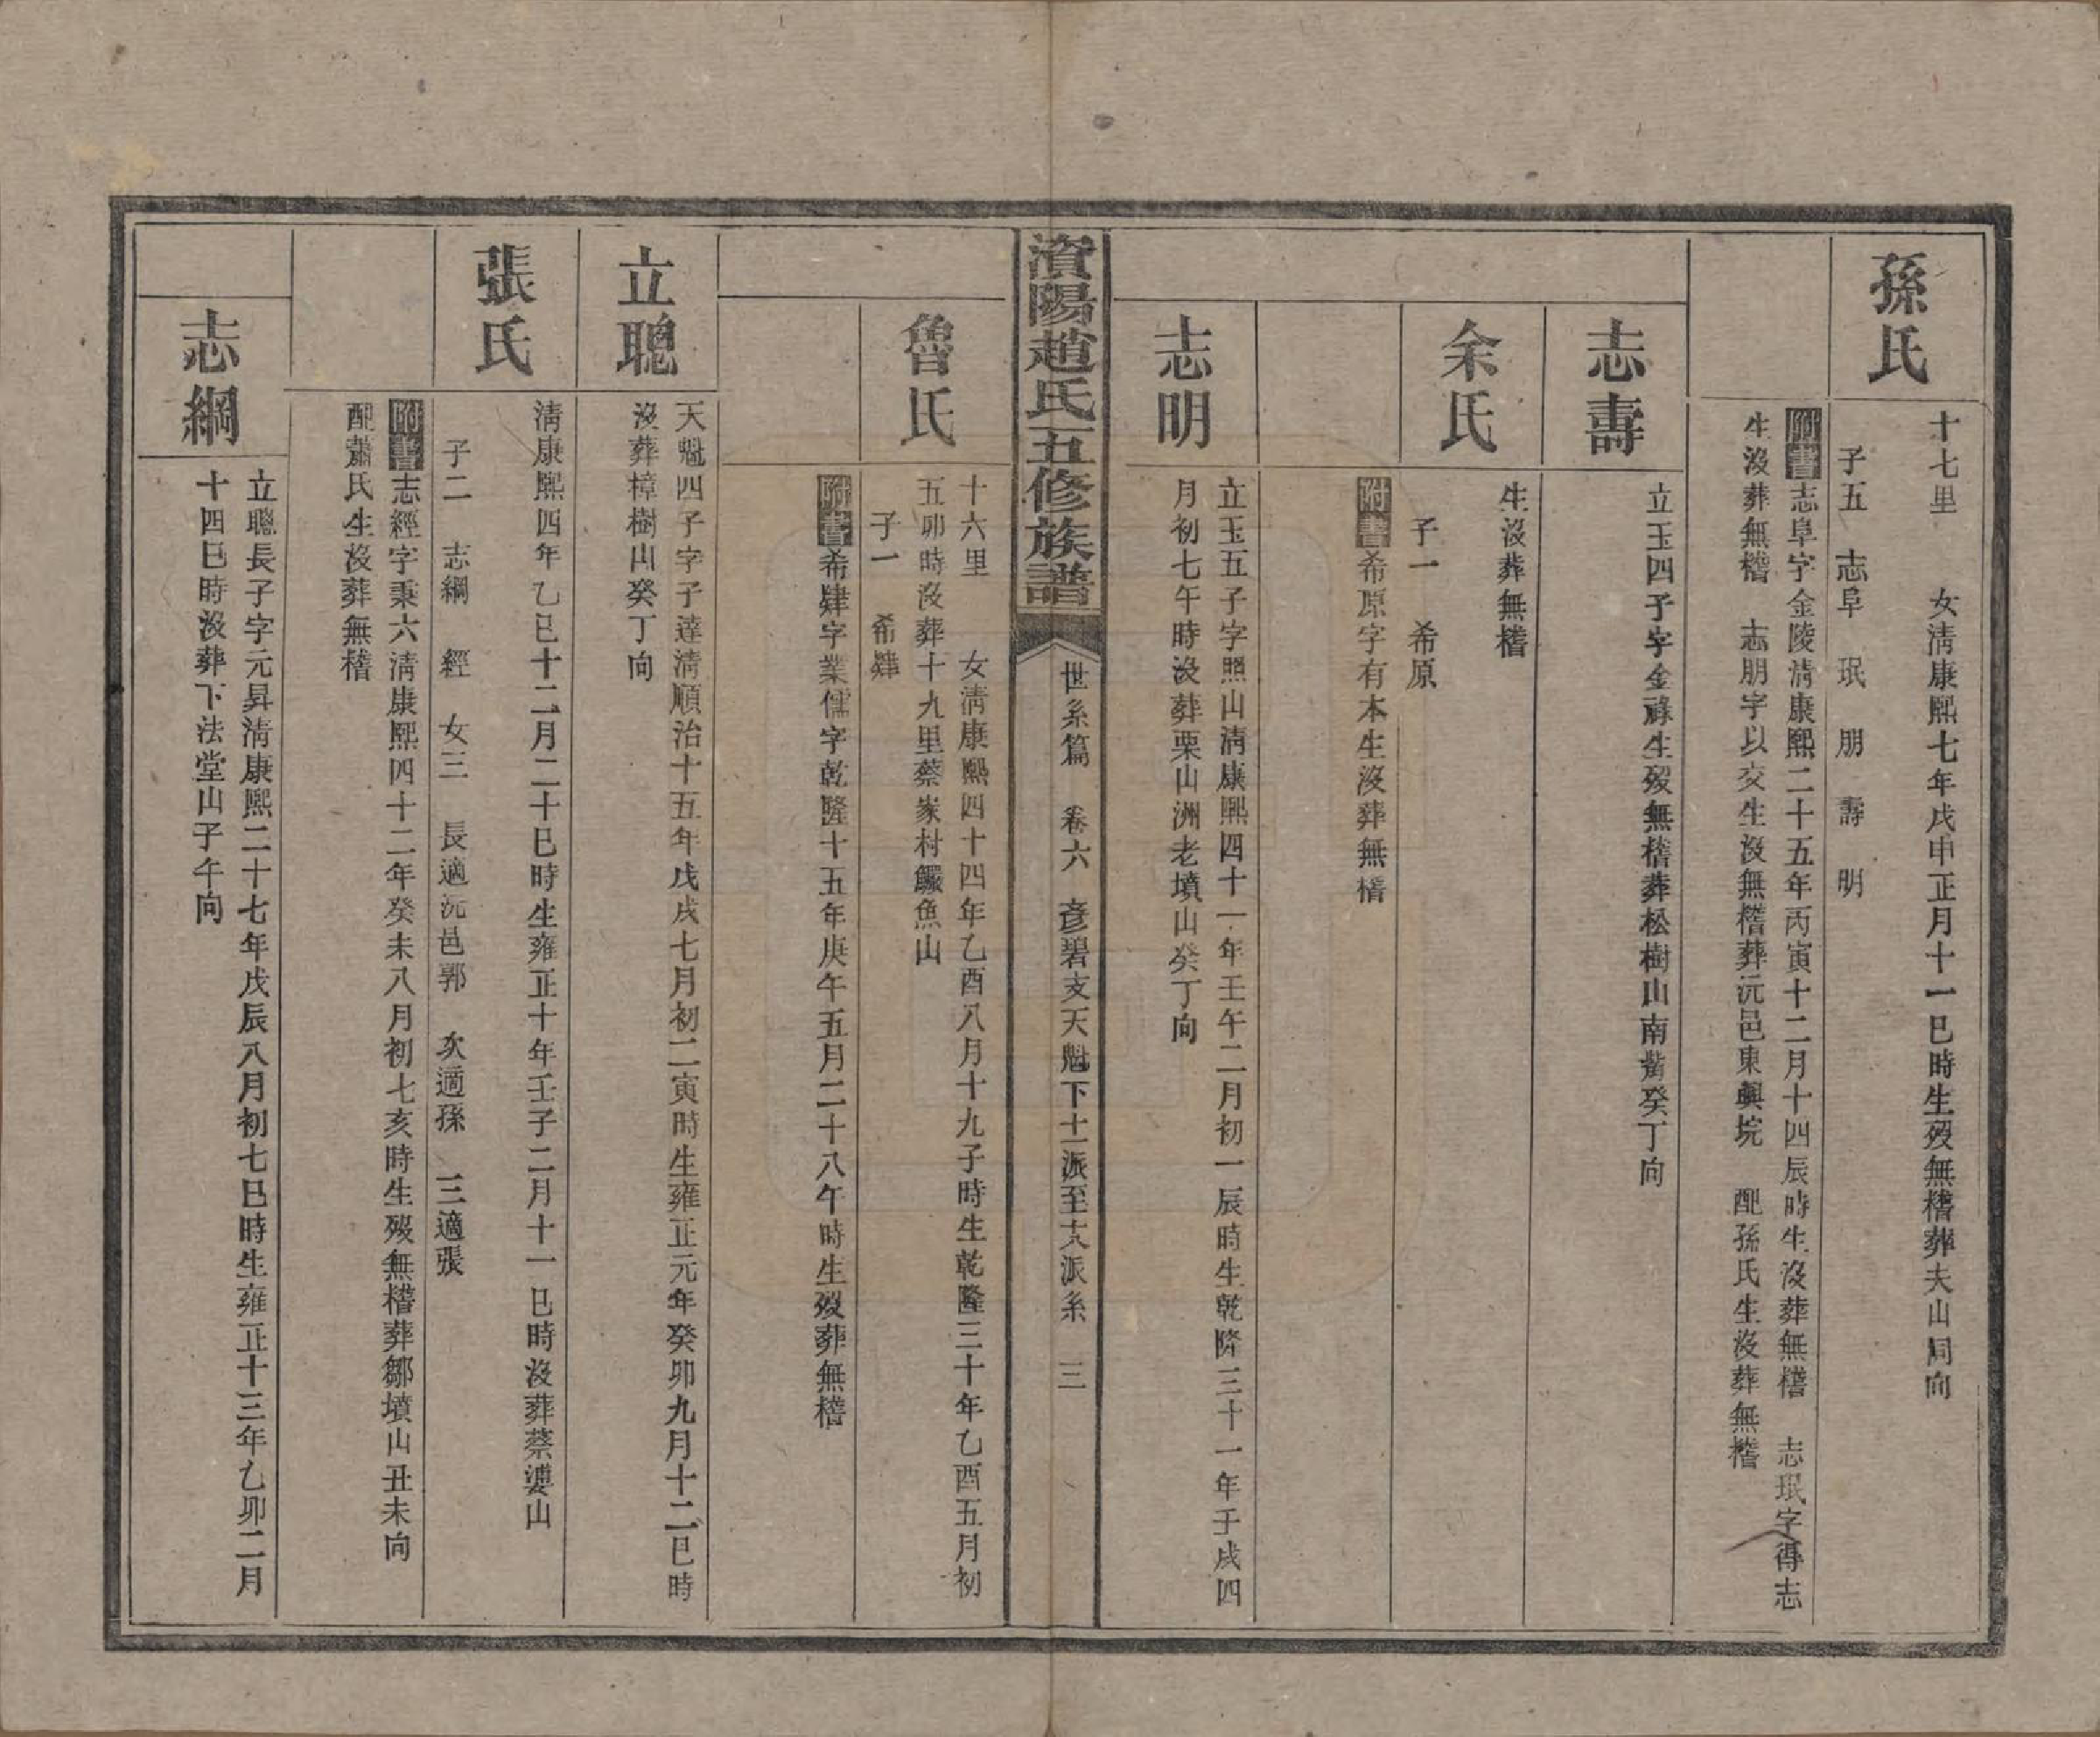 孫氏
十七里　女淸康熙七年戊申正月十一巳時生歿無稽葬夫山同向
子五　志阜　珉　朋　壽　明
附書志阜字金陵淸康熙二十五年丙寅十二月十四辰時生沒葬無稽　志珉字得志
生沒葬無稽　志朋字以交生沒無稽葬沅邑東興垸　配孫氏生沒葬無稽
志壽
立玉四子字金祿生歿無稽葬松樹山南嘴癸丁向
余氏
生沒葬無稽
子一　希原
附書希原字有本生沒葬無稽
志明
立玉五子字照山淸康熙四十一年壬午二月初一辰時生乾隆三十一年壬戌四
月初七午時沒葬栗山洲老墳山癸丁向
資陽趙氏五修族譜
世系篇　卷六　彥碧支天魁下十一派至十八派系　三
魯氏
十六里　女淸康熙四十四年乙酉八月十九子時生乾隆三十年乙酉五月初
五卯時沒葬十九里蔡家村鱖魚山
子一　希肄
附書希肄字業儒字乾隆十五年庚午五月二十八午時生歿葬無稽
立聰
天魁四子字子達淸順治十五年戊戌七月初二寅時生雍正元年癸卯九月十二巳時
沒葬樟樹山癸丁向
張氏
淸康熙四年乙巳十二月二十巳時生雍正十年壬子二月十一巳時沒葬蔡婆山
子二　志綱　經　女三　長適沅邑郭　次適孫　三適張
附書志經字秉六淸康熙四十二年癸未八月初七亥時生歿無稽葬鄒墳山丑未向
配蕭氏生沒葬無稽
志綱
立聰長子字元昇淸康熙二十七年戊辰八月初七巳時生雍正十三年乙卯二月
十四巳時沒葬下法堂山子午向